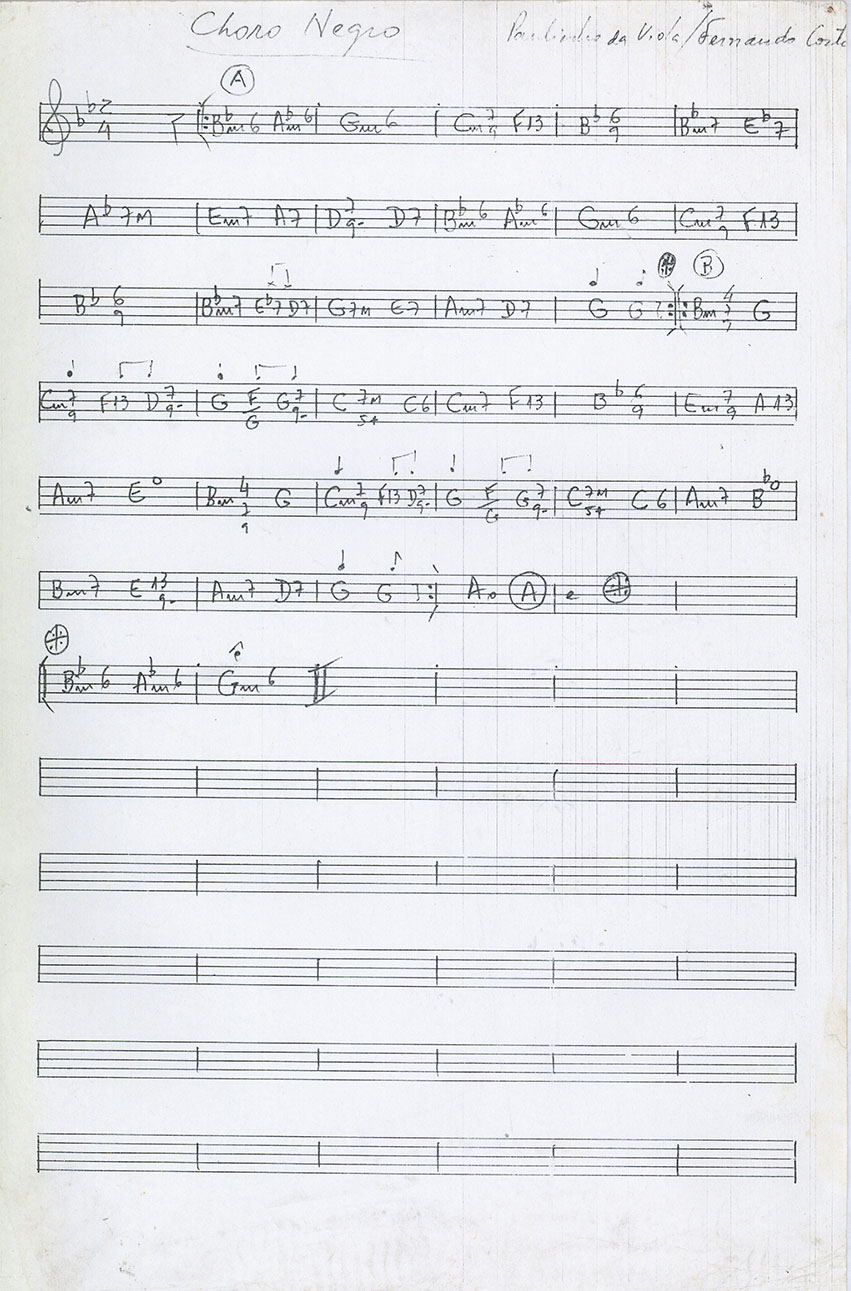 Choro Negro Paulinho da Viola / Fernando Costa
A
2/4 B♭m6 A♭m6 | Gm6 | Cm7/9 F13 | B♭6/9 | B♭m7 E♭7
A♭7M | Em7 A7 | D7/9- D7 | B♭m6 A♭m6 | Gm6 | Cm7/9 F13
B
B♭6/9 | B♭m7 E♭7 D7 | G7M E7 | Am7 D7 | G G :||: Bm4/7 G
Cm7/9 F13 D7/9- | G F/G G7/9- | C7M/5+ C6 | Cm7 F13 | B♭6/9 | Em7/9 A13
Am7 E° | Bm4/7/9 G | Cm7/9 F13 D7/9- | G F/G G7/9- | C7M/5+ C6 | Am7 B♭°
Bm7 E13/9- | Am7 D7 | G G :| Ao A | e
B♭m6 A♭m6 | Gm6